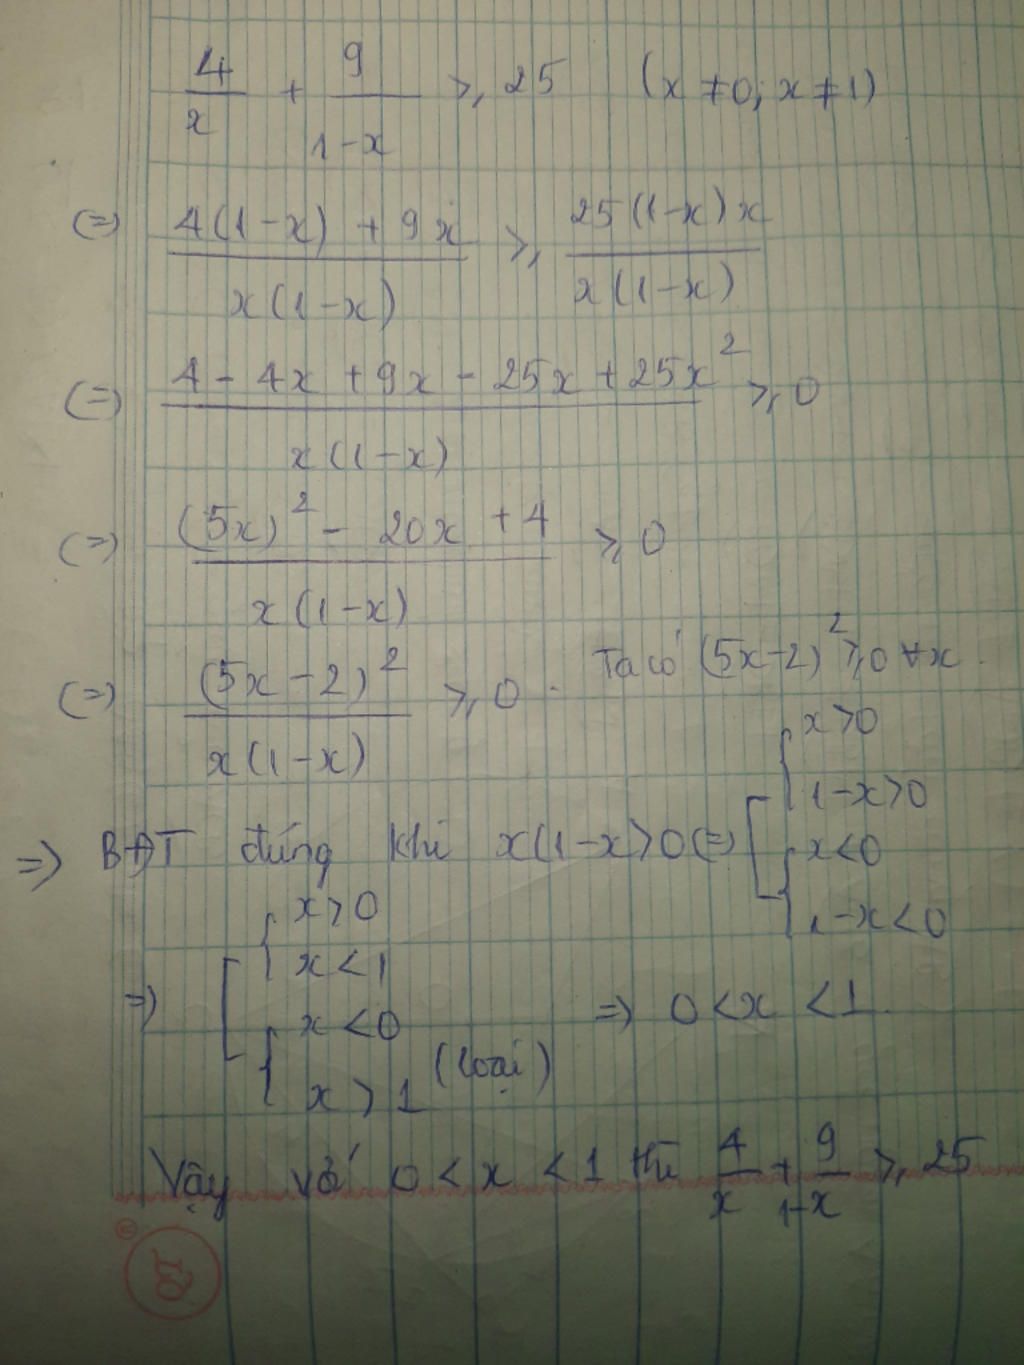 4/x + 9/(1-x) ≥ 25 (x ≠ 0; x ≠ 1)
(=) (4(1-x) + 9x)/(x(1-x)) ≥ (25(1-x)x)/(x(1-x))
(=) (4 - 4x + 9x - 25x + 25x²)/(x(1-x)) ≥ 0
(=) ((5x)² - 20x + 4)/(x(1-x)) ≥ 0
(=) (5x-2)²/(x(1-x)) ≥ 0. Ta có (5x-2)² ≥ 0 ∀x.
=) BĐT đúng khi x(1-x>0 (=) [ { x>0 1-x>0 { x<0 1-x<0
=) [ { x>0 x<1 { x<0 x>1 (loại) =) 0<x<1.
Vậy với 0<x<1 thì 4/x + 9/(1-x) ≥ 25